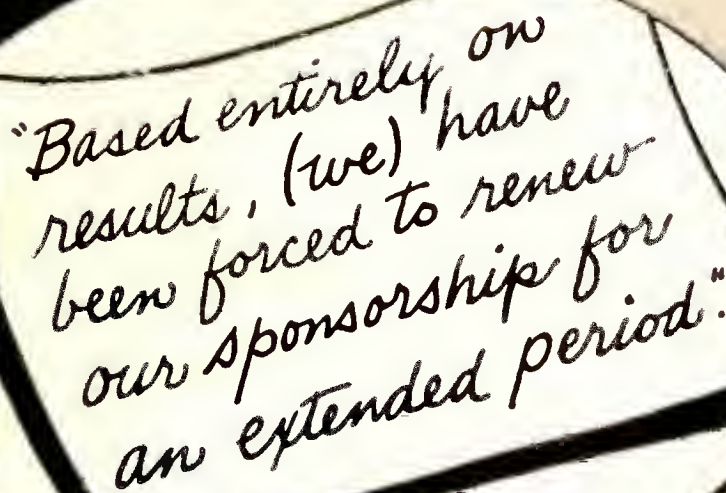 "Based entirely on
results, (we) have
been forced to renew
our sponsorship for
an extended period".